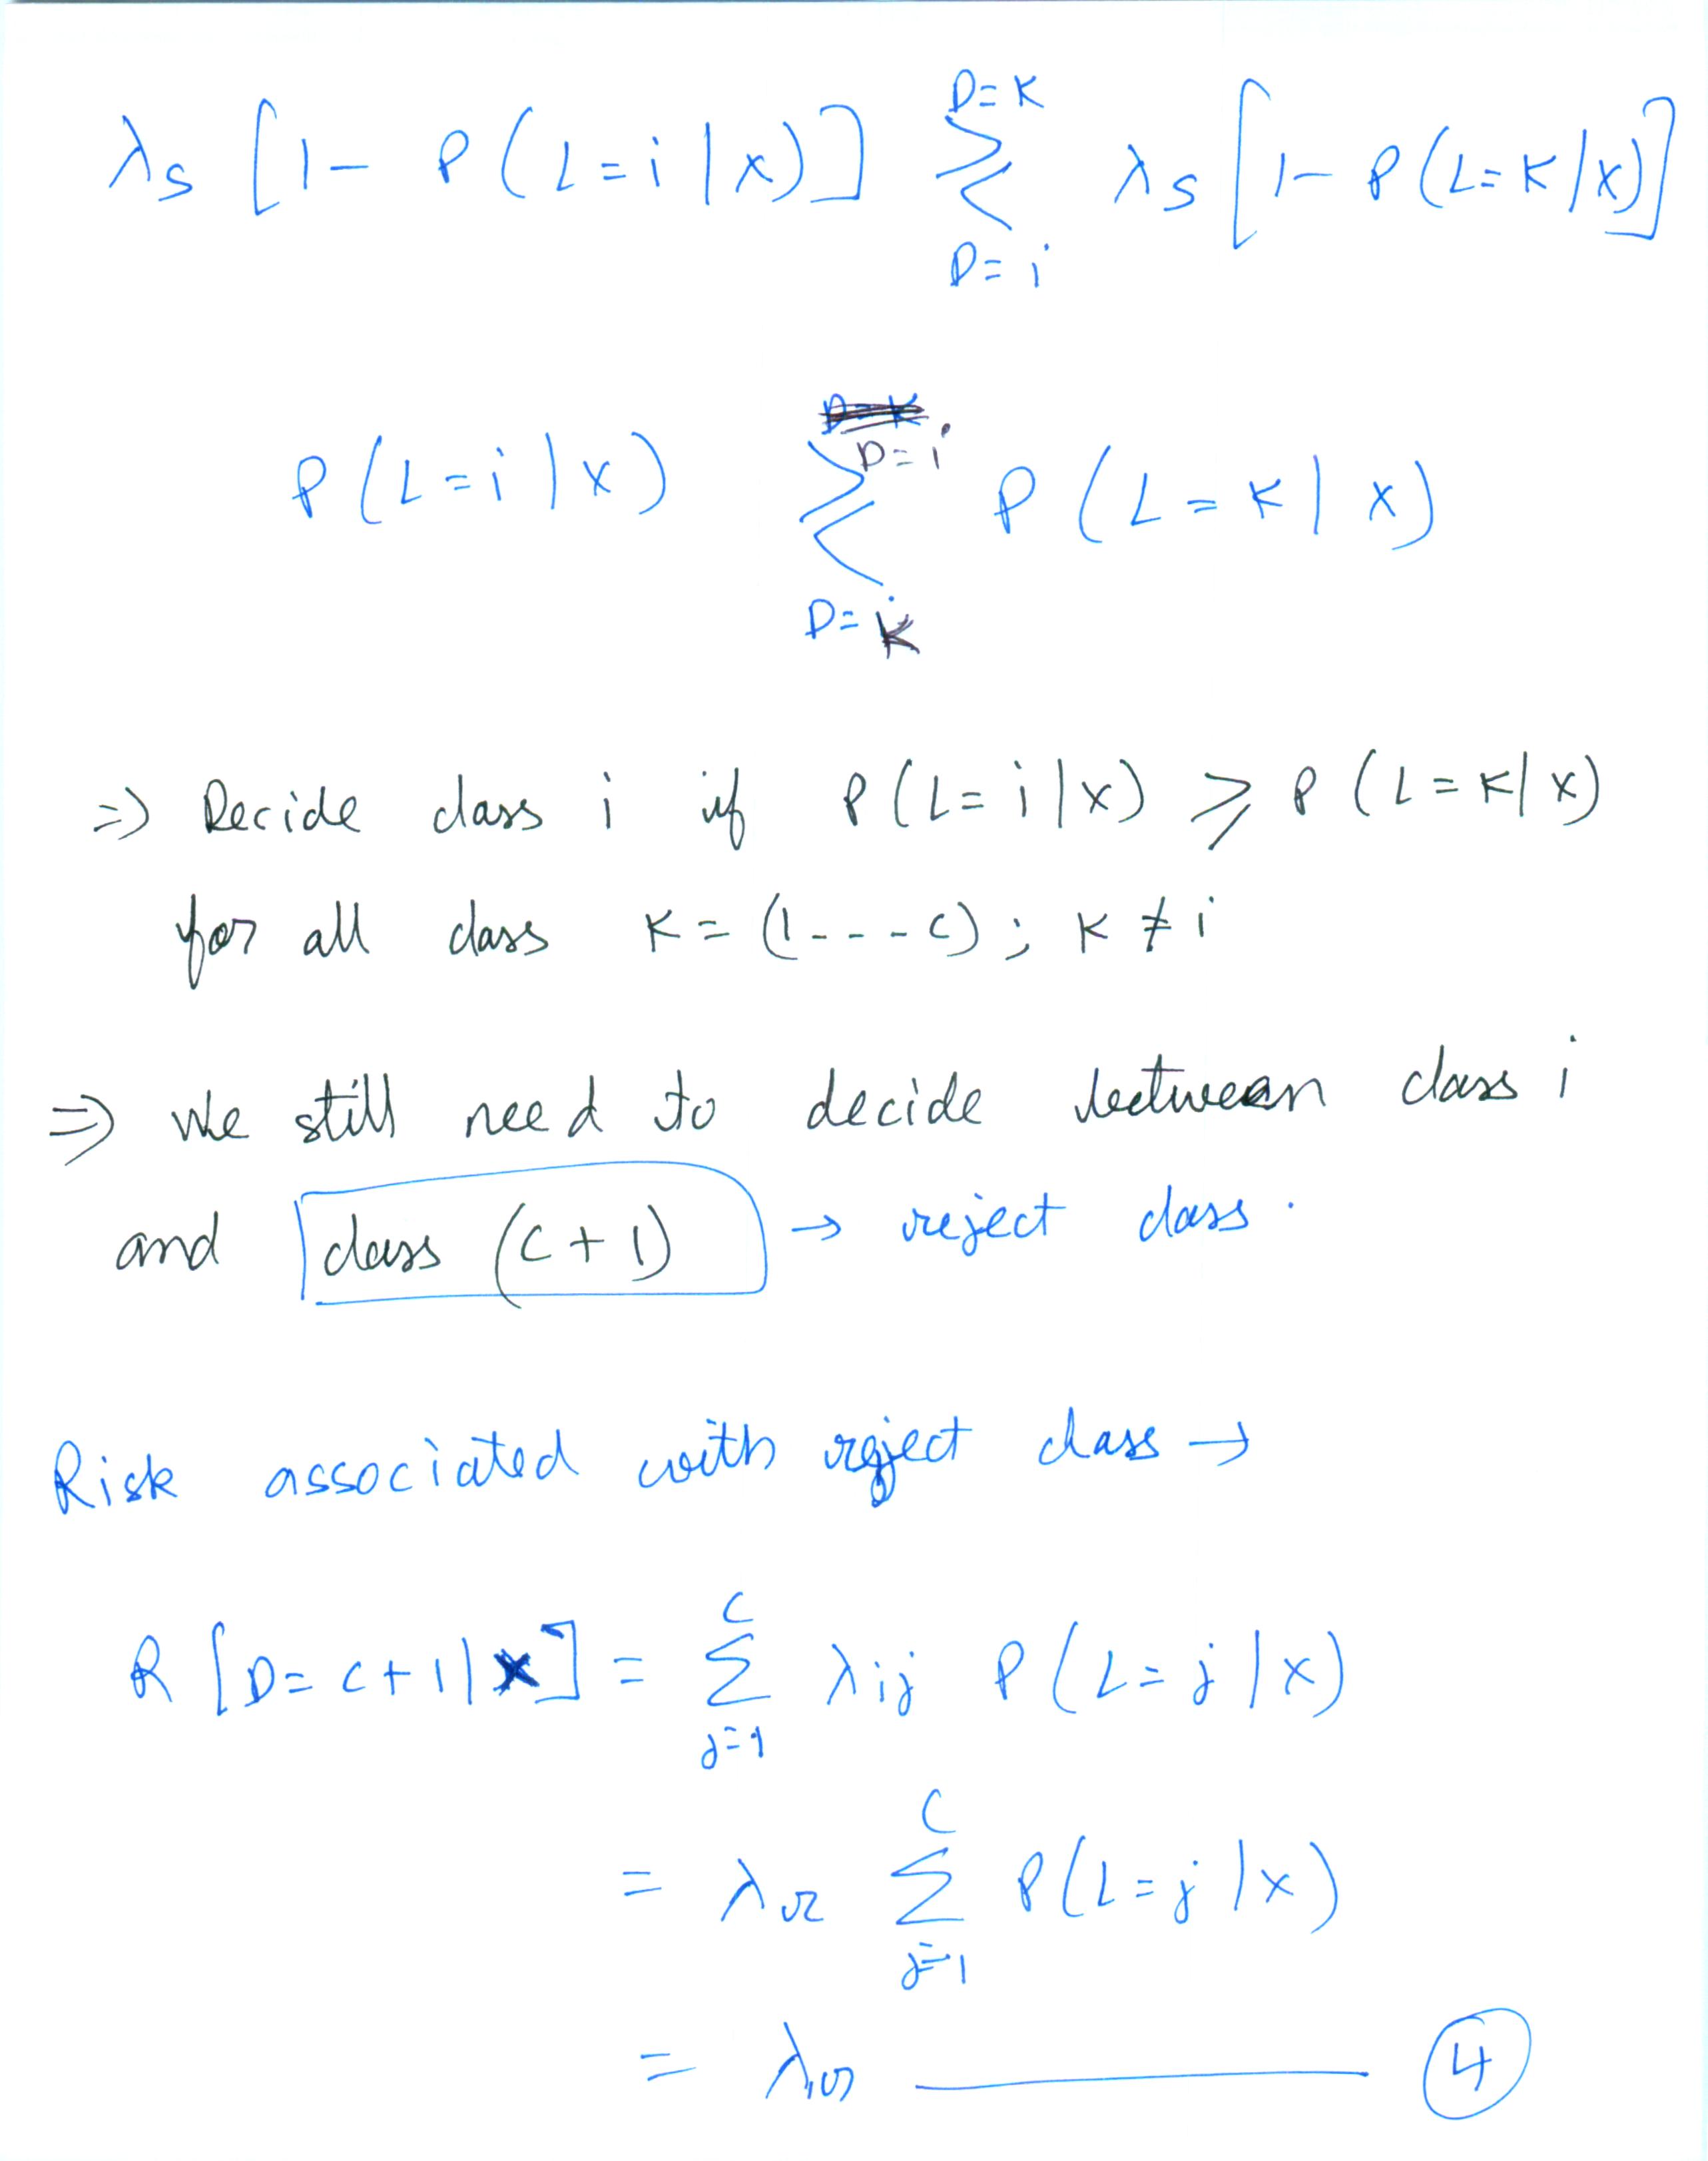 λs [1 - P(L=i|x)] ≷ λs [1 - P(L=K|x)]
D=K
D=i
P(L=i|x) ≷ P(L=K|x)
D=i
D=k
=> Decide class i if P(L=i|x) ≥ P(L=K|x)
for all class K = (1---C) ; K ≠ i
=> We still need to decide between class i
and class (C+1) → reject class.
Risk associated with reject class →
R[D=C+1|x] = Σ_{j=1}^{C} λij P(L=j|x)
= λr Σ_{j=1}^{C} P(L=j|x)
= λr ——— 4